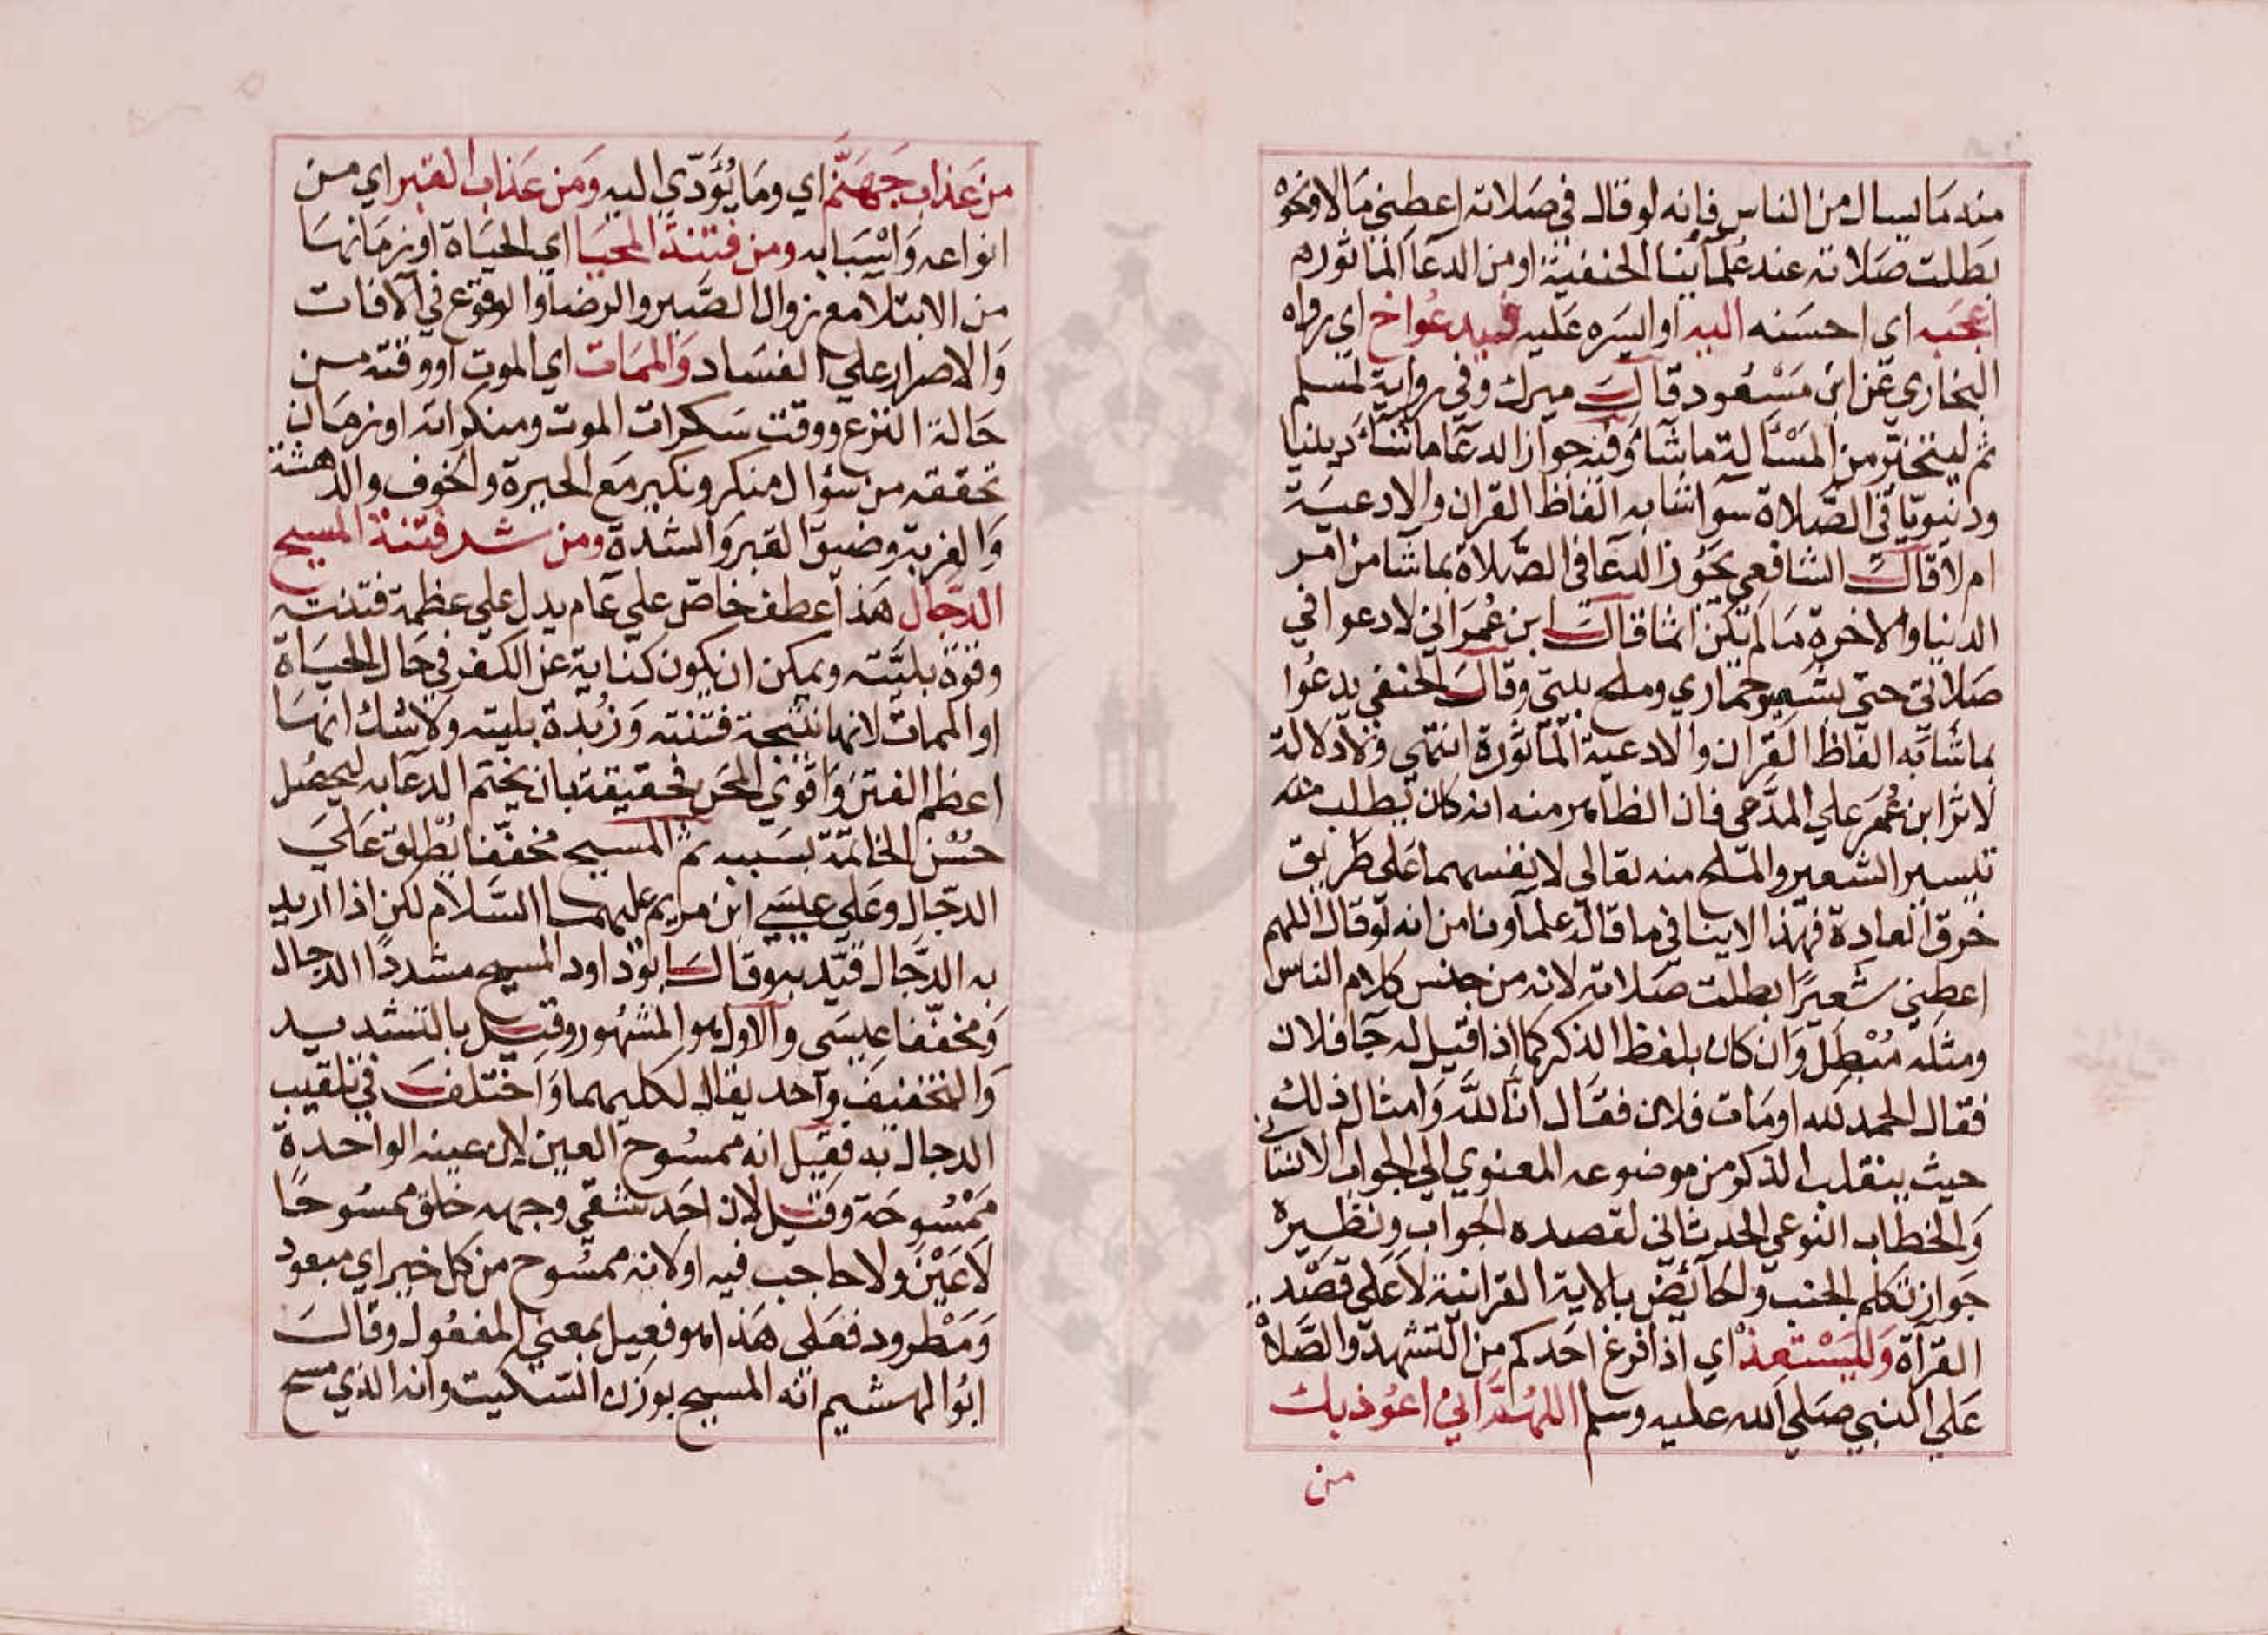 منه ما يسال من الناس فانه لو قال في صلاته اعطني مالا ونحوه
بطلت صلاته عند علمآئنا الحنفية او من الدعآ الماثوره
اعجبه اي احسنه اليه او ايسره عليه فيدعوا خ اي رواه
البخاري عن ابن مسعود قال ميرك وفي رواية لمسلم
ثم ليتخير من المسألة ما شآء وفيه جواز الدعآ ما شآء دينيا
ودنيويا في الصلاة سوآ شابه الفاظ القران والادعية
ام لا قال الشافعي يجوز الدعآ في الصلاة بما شآ من امر
الدنيا والاخرة ما لم يكن اثما قال ابن عمر اني لادعوا في
صلاتي حتى بشعير حماري وملح بيتي وقال الحنفي يدعوا
بما شابه الفاظ القران والادعية الماثورة انتهى ولا دلالة
لاثر ابن عمر علي المدعى فان الظاهر منه انه كان يطلب منه
تيسير الشعير والملح منه تعالي لا نفسهما على طريق
خرق العادة فهذا لا ينافي ما قاله علمآونا من انه لو قال اللهم
اعطني شعيرا بطلت صلاته لانه من جنس كلام الناس
ومثله مبطل وان كان بلفظ الذكر كما اذا قيل له جآ فلان
فقال الحمد لله او مات فلان فقال انا لله وامثال ذلك
حيث ينقلب الذكر من موضوعه المعنوي الي الجواب الانشآئي
والخطاب النوعي الحدثاني لقصده الجواب ونظيره
جواز تكلم الجنب والحآئض بالاية القرانية لا على قصد
القرآة وليستعذ اي اذا فرغ احدكم من التشهد والصلاة
علي النبي صلي الله عليه وسلم اللهم اني اعوذ بك
من
من عذاب جهنم اي وما يؤدي اليه ومن عذاب القبر اي من
انواعه واسبابه ومن فتنة المحيا اي الحياة او زمانها
من الابتلآ مع زوال الصبر والرضا والوقوع في الآفات
والاصرار علي الفساد والممات اي الموت او وقته من
حالة النزع ووقت سكرات الموت ومنكراته او زمان
تحققه من سؤال منكر ونكير مع الحيرة والخوف والدهشة
والغربة وضيق القبر والشدة ومن شر فتنة المسيح
الدجال هذا عطف خاص علي عام يدل علي عظمة فتنته
وقوة بليته ويمكن ان يكون كناية عن الكفر في حال الحياة
او الممات لانها نتيجة فتنته وزبدة بليته ولا شك انها
اعظم الفتن واقوي المحن فحقيقة بان يختم الدعآ به ليحصل
حسن الخاتمة بسببه ثم المسيح مخففا يطلق علي
الدجال وعلي عيسي ابن مريم عليهما السلام لكن اذا اريد
به الدجال قيد به وقال ابو داود المسيح مشددا الدجال
ومخففا عيسى والاول هو المشهور وقيل بالتشديد
والتخفيف واحد يقال لكليهما واختلف في تلقيب
الدجال به فقيل انه ممسوح العين لان عينه الواحدة
ممسوحة وقيل لان احد شقي وجهه خلق ممسوحا
لا عين ولا حاجب فيه او لانه ممسوح من كل خير اي مبعود
ومطرود فعلى هذا هو فعيل بمعني المفعول وقال
ابو الهشيم انه المسيح بوزن السكيت وانه الذي مسح